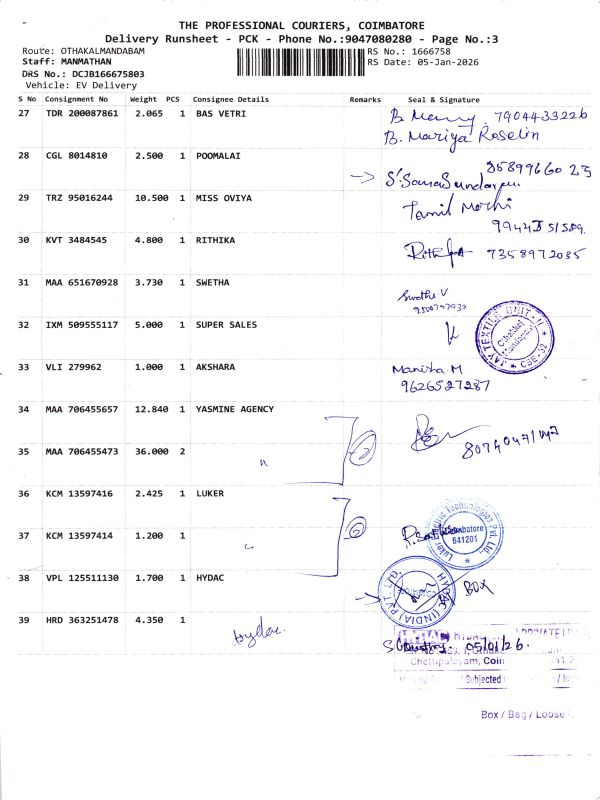 THE PROFESSIONAL COURIERS, COIMBATORE
Delivery Runsheet - PCK - Phone No.:9047080280 - Page No.:3
Route: OTHAKALMANDABAM
RS No.: 1666758
Staff: MANMATHAN
RS Date: 05-Jan-2026
DRS No.: DCJB166675803
Vehicle: EV Delivery
S No Consignment No Weight PCS Consignee Details Remarks Seal & Signature
27 TDR 200087861 2.065 1 BAS VETRI 7904433226
B. Mariya Roselin
28 CGL 8014810 2.500 1 POOMALAI
29 TRZ 95016244 10.500 1 MISS OVIYA Tamil
30 KVT 3484545 4.800 1 RITHIKA 7358972035
31 MAA 651670928 3.730 1 SWETHA Swathe V
32 IXM 509555117 5.000 1 SUPER SALES
JAY TEXTILE UNIT-II
CBE-32
33 VLI 279962 1.000 1 AKSHARA Manisha M
9626527287
34 MAA 706455657 12.840 1 YASMINE AGENCY
35 MAA 706455473 36.000 2 "
36 KCM 13597416 2.425 1 LUKER
Technologies Pvt. Ltd.,
Coimbatore
641201
37 KCM 13597414 1.200 1 "
38 VPL 125511130 1.700 1 HYDAC
HYDAC (INDIA) PVT. LTD.
BOX
39 HRD 363251478 4.350 1 hydac
PRIVATE
05/01/26.
Chettipalayam, Coim
Subjected
Box / Bag / Loose